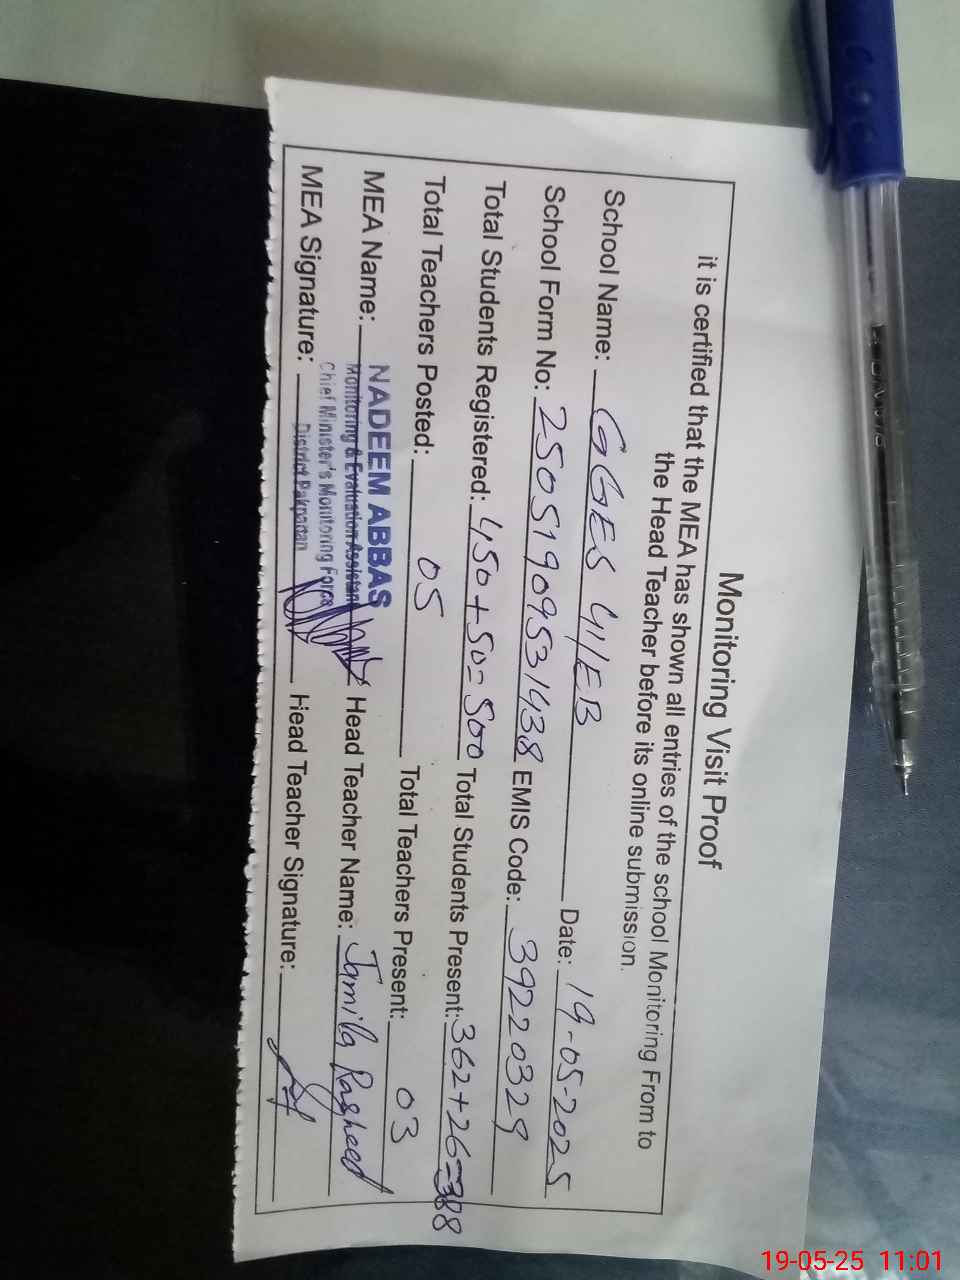 Monitoring Visit Proof
it is certified that the MEA has shown all entries of the school Monitoring From to
the Head Teacher before its online submission.
School Name: GGES 41/EB Date: 19-05-2025
School Form No: 25051909531438 EMIS Code: 39220329
Total Students Registered: 450+50=500 Total Students Present: 362+26=388
Total Teachers Posted: 05 Total Teachers Present: 03
MEA Name: NADEEM ABBAS Head Teacher Name: Jamila Rasheed
Monitoring & Evaluation Assistant
Chief Minister's Monitoring Force
District Pakpattan
MEA Signature: Head Teacher Signature:
19-05-25 11:01